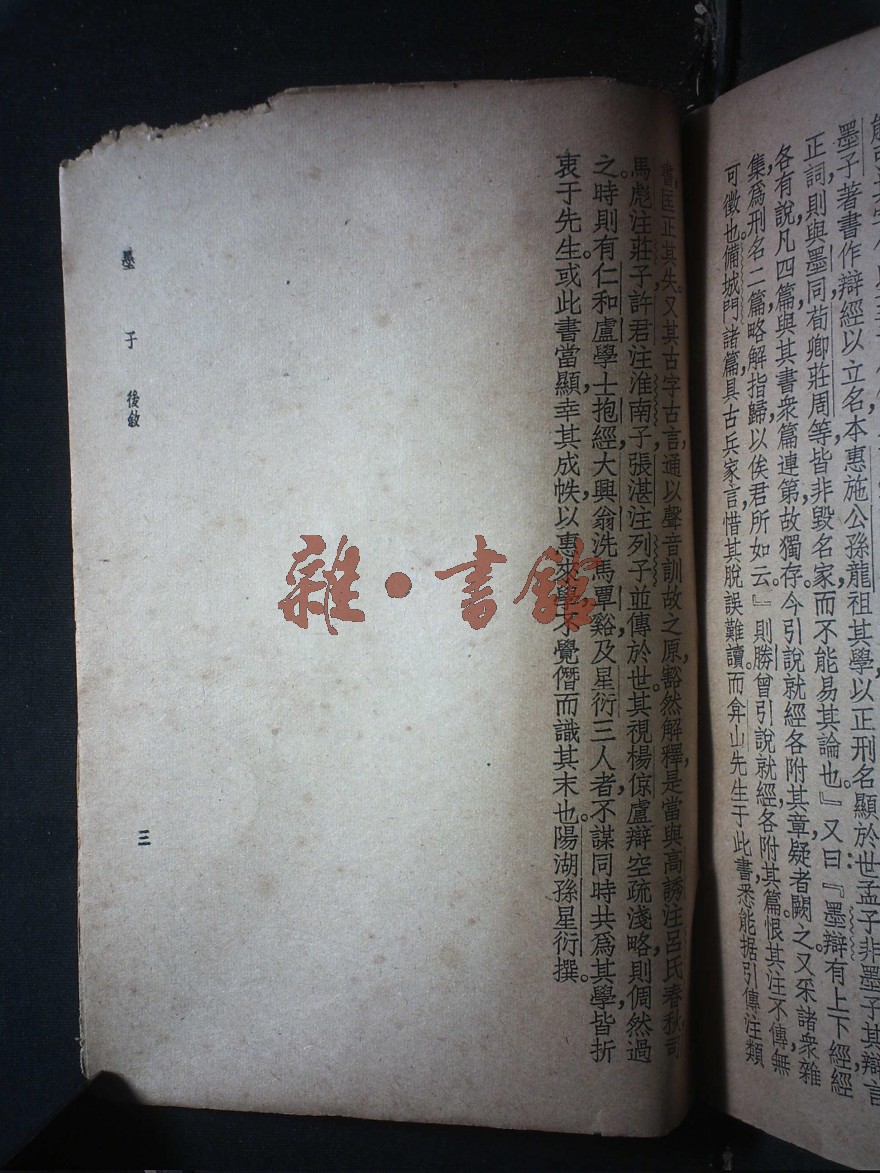 墨子著書作辯經以立名本惠施公孫龍祖其學以正刑名顯於世孟子非墨子其辯言
正詞，則與墨同荀卿莊周等，皆非毀名家，而不能易其論也。』又曰：『墨辯有上下經，經
各有說凡四篇與其書衆篇連第故獨存。今引說就經各附其章疑者闕之又采諸衆雜
集爲刑名二篇略解指歸以俟君所如云。』則勝曾引說就經，各附其篇，恨其注不傳，無
可徵也。備城門諸篇具古兵家言惜其脫誤難讀。而弇山先生于此書，悉能据引傳注類
書，匡正其失。又其古字古言，通以聲音訓故之原，豁然解釋，是當與高誘注呂氏春秋司
馬彪注莊子許君注淮南子，張湛注列子，並傳於世。其視楊倞盧辯空疏淺略，則倜然過
之。時則有仁和盧學士抱經，大興翁洗馬覃谿及星衍三人者，不謀同時共爲其學，皆折
衷于先生。或此書當顯，幸其成帙，以惠來學，不覺僭而識其末也。陽湖孫星衍撰。
墨子 後敘
三
雜·書館